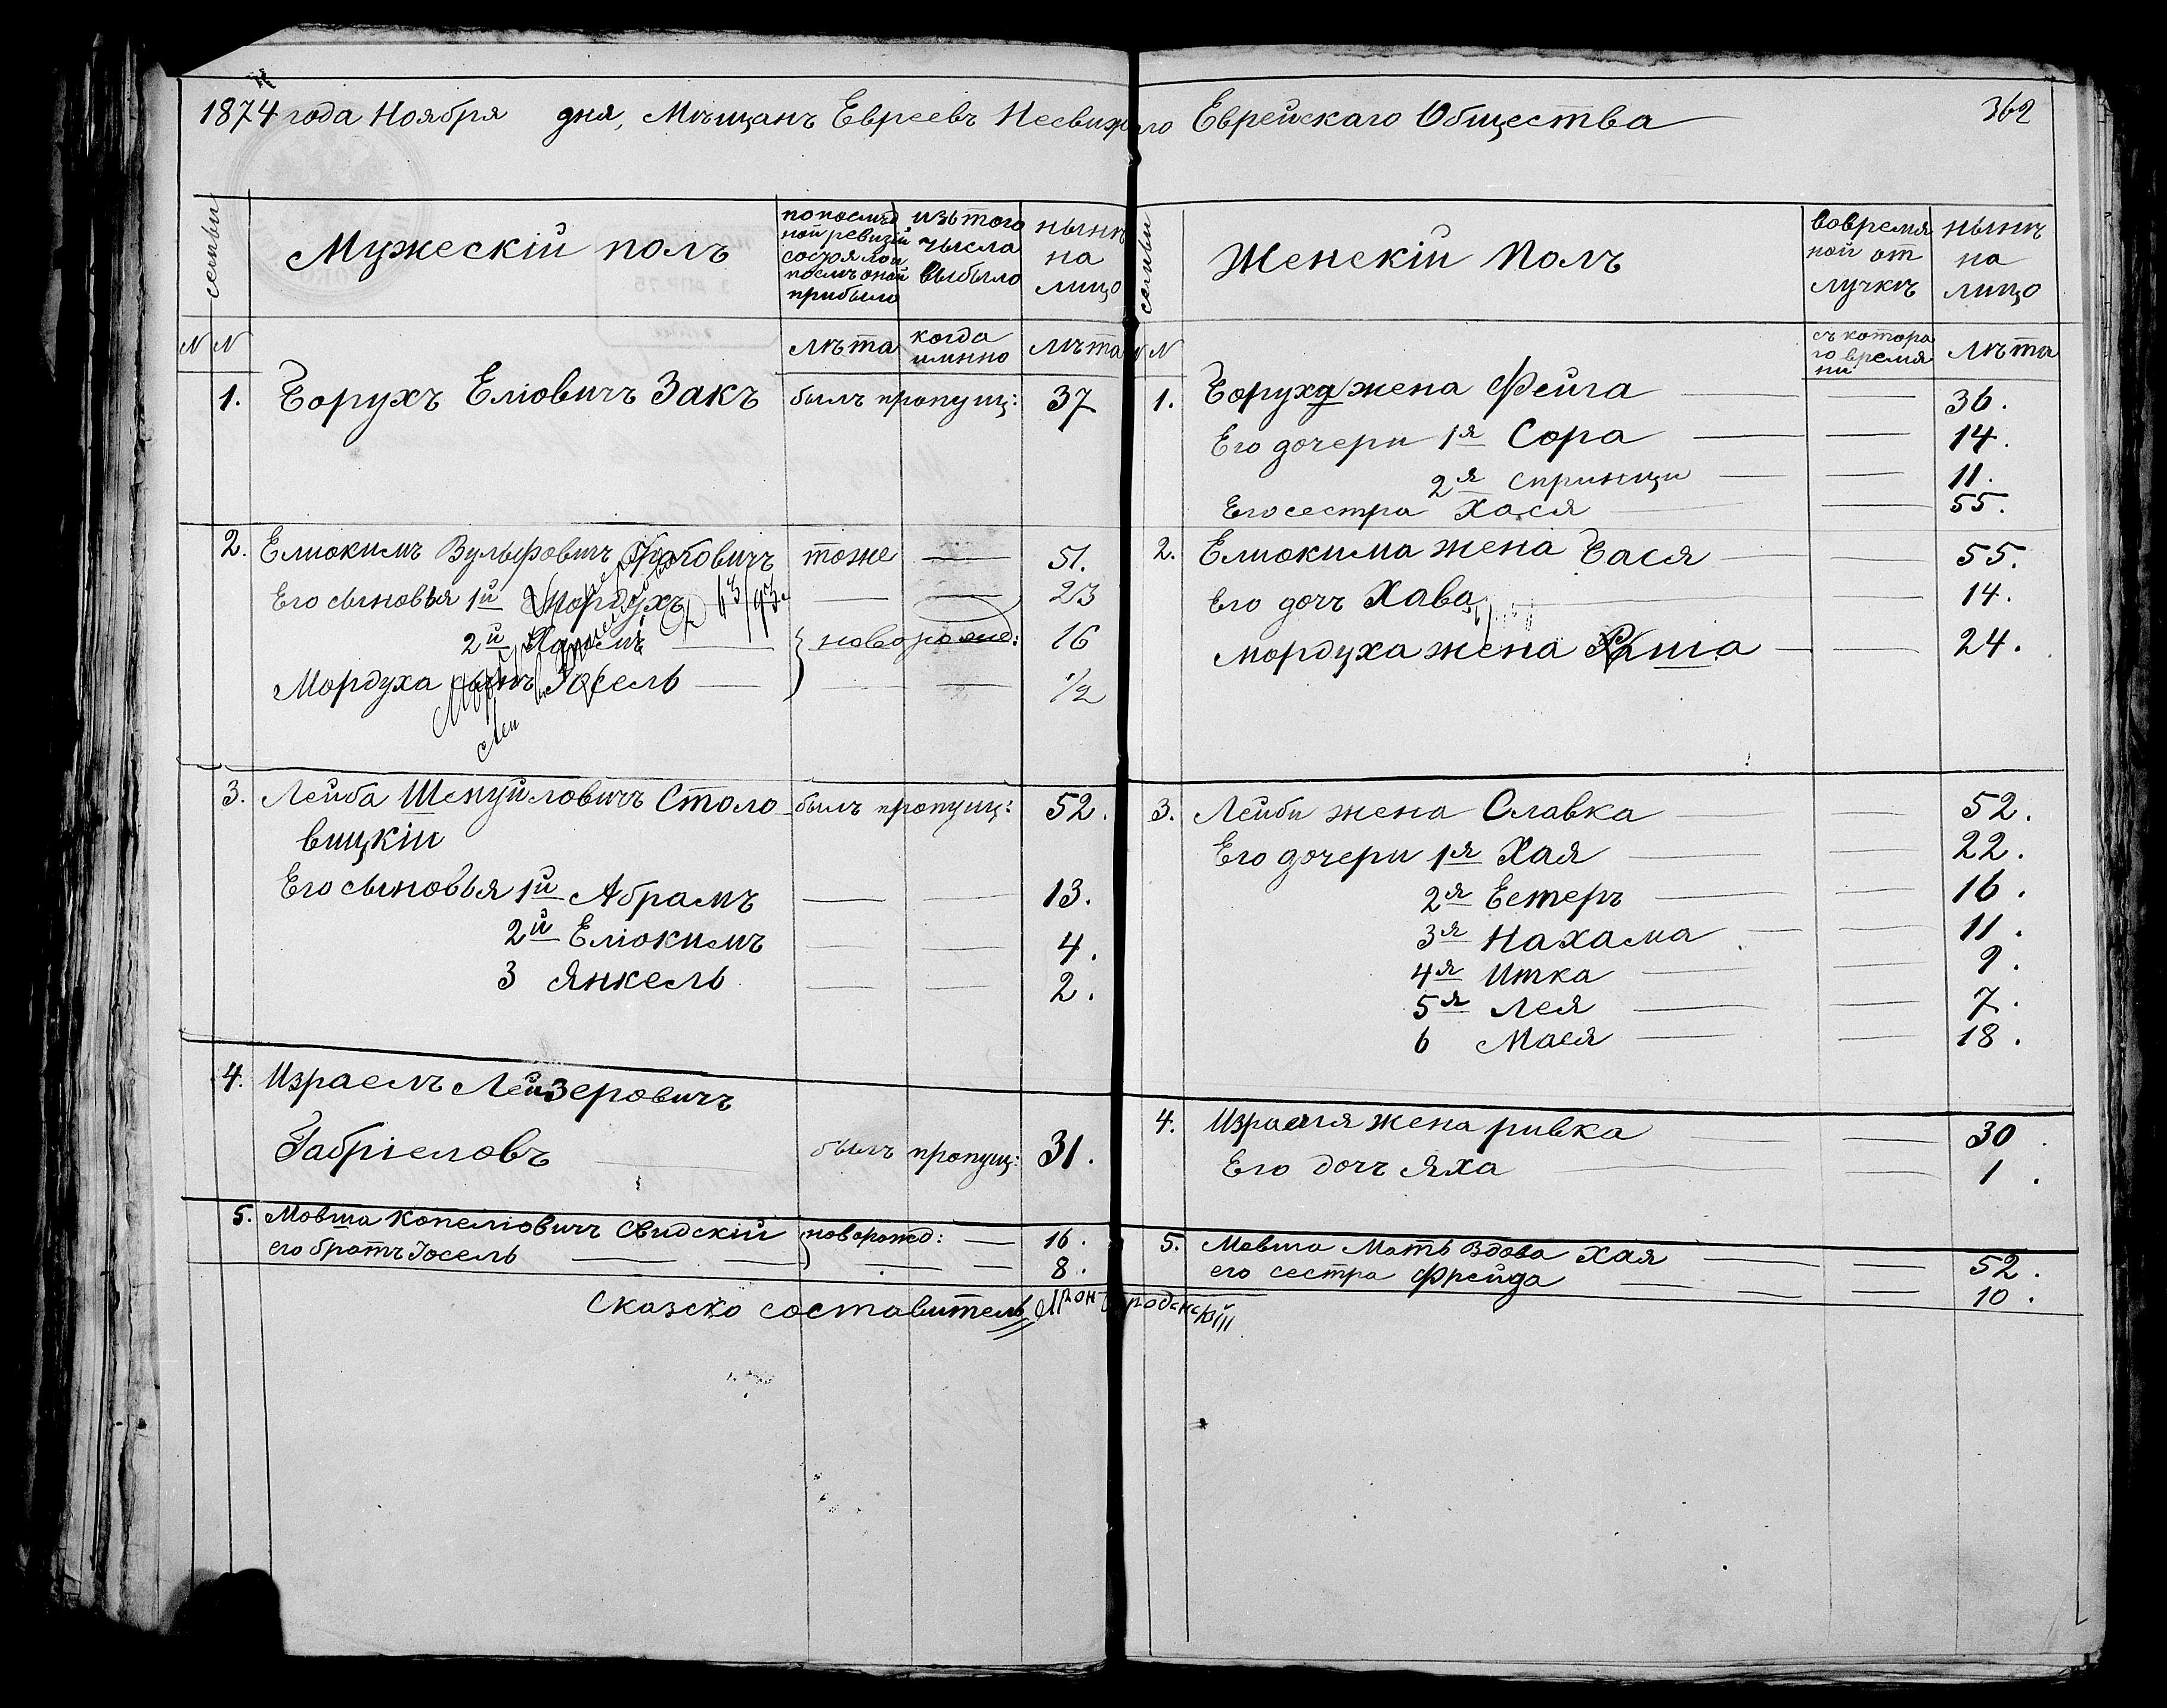 1874 года Ноября дня, Мѣщанъ Евреевъ Несвижского Еврейскаго Общества 362
семьи
Мужескій полъ
по послѣд
ной ревизіи
состояло и
послѣ оной
прибыло
изъ того
числа
выбыло
нынѣ
на
лицо
N N
лѣта
когда
именно
лѣта
1. Борухъ Еліовичъ Закъ былъ пропущ: 37
2. Елиокимъ Вульфовичъ тоже — 51.
Его сыновья 1й Мордухъ — — 23
63/93
2й — новорожд: 16
Мордуха сынъ Іосель — — — 1/2
3. Лейба Шемуйловичъ Столо- былъ пропущ: 52.
вицкій
Его сыновья 1й Абрамъ — — 13.
2й Еліокимъ — — 4.
3 Янкель — — 2.
4. Израель Лейзеровичъ
Габріеловъ — былъ пропущ: 31.
5. Мовша Копеліовичъ Свидскій новорожд: — 16.
его братъ Іосель — — — — 8.
Сказско составитель
семьи
Женскій Полъ
вовремя
ной от
лучкѣ
нынѣ
на
лицо
N N
съ котора
го время
ни
лѣта
1. Боруха жена Фейга — — 36.
Его дочери 1я Сора — — 14.
2я Спринци — — 11.
Его сестра Хася — — 55.
2. Елиокима жена Бася — — 55.
Его дочъ Хава — 14.
Мордуха жена — — 24.
3. Лейби жена Славка — — 52.
Его дочери 1я Хая — — 22.
2я Естеръ — — 16.
3я Нахама — — 11.
4я Итка — — 9.
5я Лея — — 7.
6 Мася — — 18.
4. Израеля жена ривка — — 30
Его дочъ Яха — 1.
5. Мовша Мать Вдова Хая — — 52.
его сестра Фрейда — — — 10.